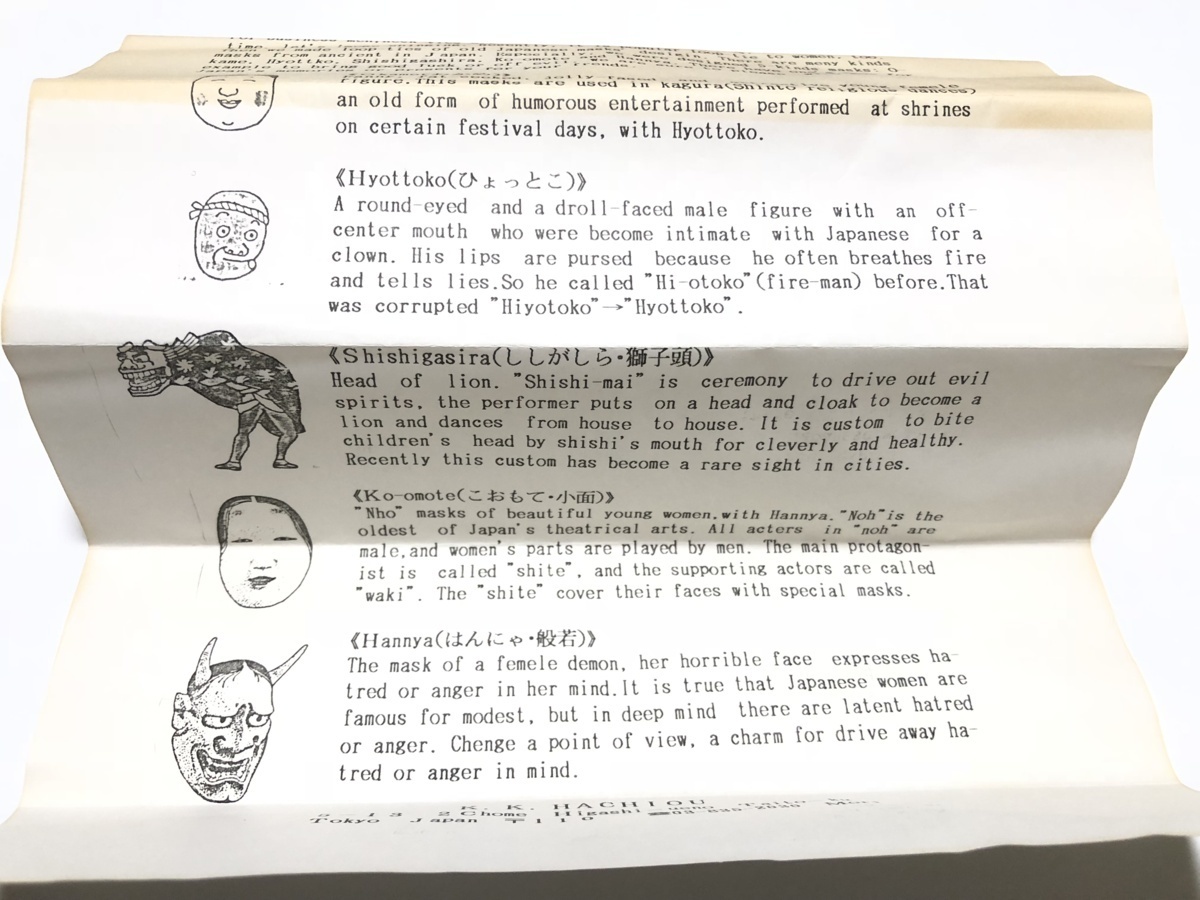 masks from ancient in Japan.
There are many kinds
kame, Hyottko, Shishigashira, Ko-omote,
figure.This masks are used in kagura(Shinto religious dances)
an old form of humorous entertainment performed at shrines
on certain festival days, with Hyottoko.
《Hyottoko(ひょっとこ)》
A round-eyed and a droll-faced male figure with an off-
center mouth who were become intimate with Japanese for a
clown. His lips are pursed because he often breathes fire
and tells lies.So he called "Hi-otoko"(fire-man) before.That
was corrupted "Hiyotoko"→"Hyottoko".
《Shishigasira(ししがしら・獅子頭)》
Head of lion. "Shishi-mai" is ceremony to drive out evil
spirits, the performer puts on a head and cloak to become a
lion and dances from house to house. It is custom to bite
children's head by shishi's mouth for cleverly and healthy.
Recently this custom has become a rare sight in cities.
《Ko-omote(こおもて・小面)》
"Nho" masks of beautiful young women.with Hannya."Noh"is the
oldest of Japan's theatrical arts. All acters in "noh" are
male,and women's parts are played by men. The main protagon-
ist is called "shite", and the supporting actors are called
"waki". The "shite" cover their faces with special masks.
《Hannya(はんにゃ・般若)》
The mask of a femele demon, her horrible face expresses ha-
tred or anger in her mind.It is true that Japanese women are
famous for modest, but in deep mind there are latent hatred
or anger. Chenge a point of view, a charm for drive away ha-
tred or anger in mind.
K. K. HACHIOU
Chome Higashi
Tokyo Japan 〒110